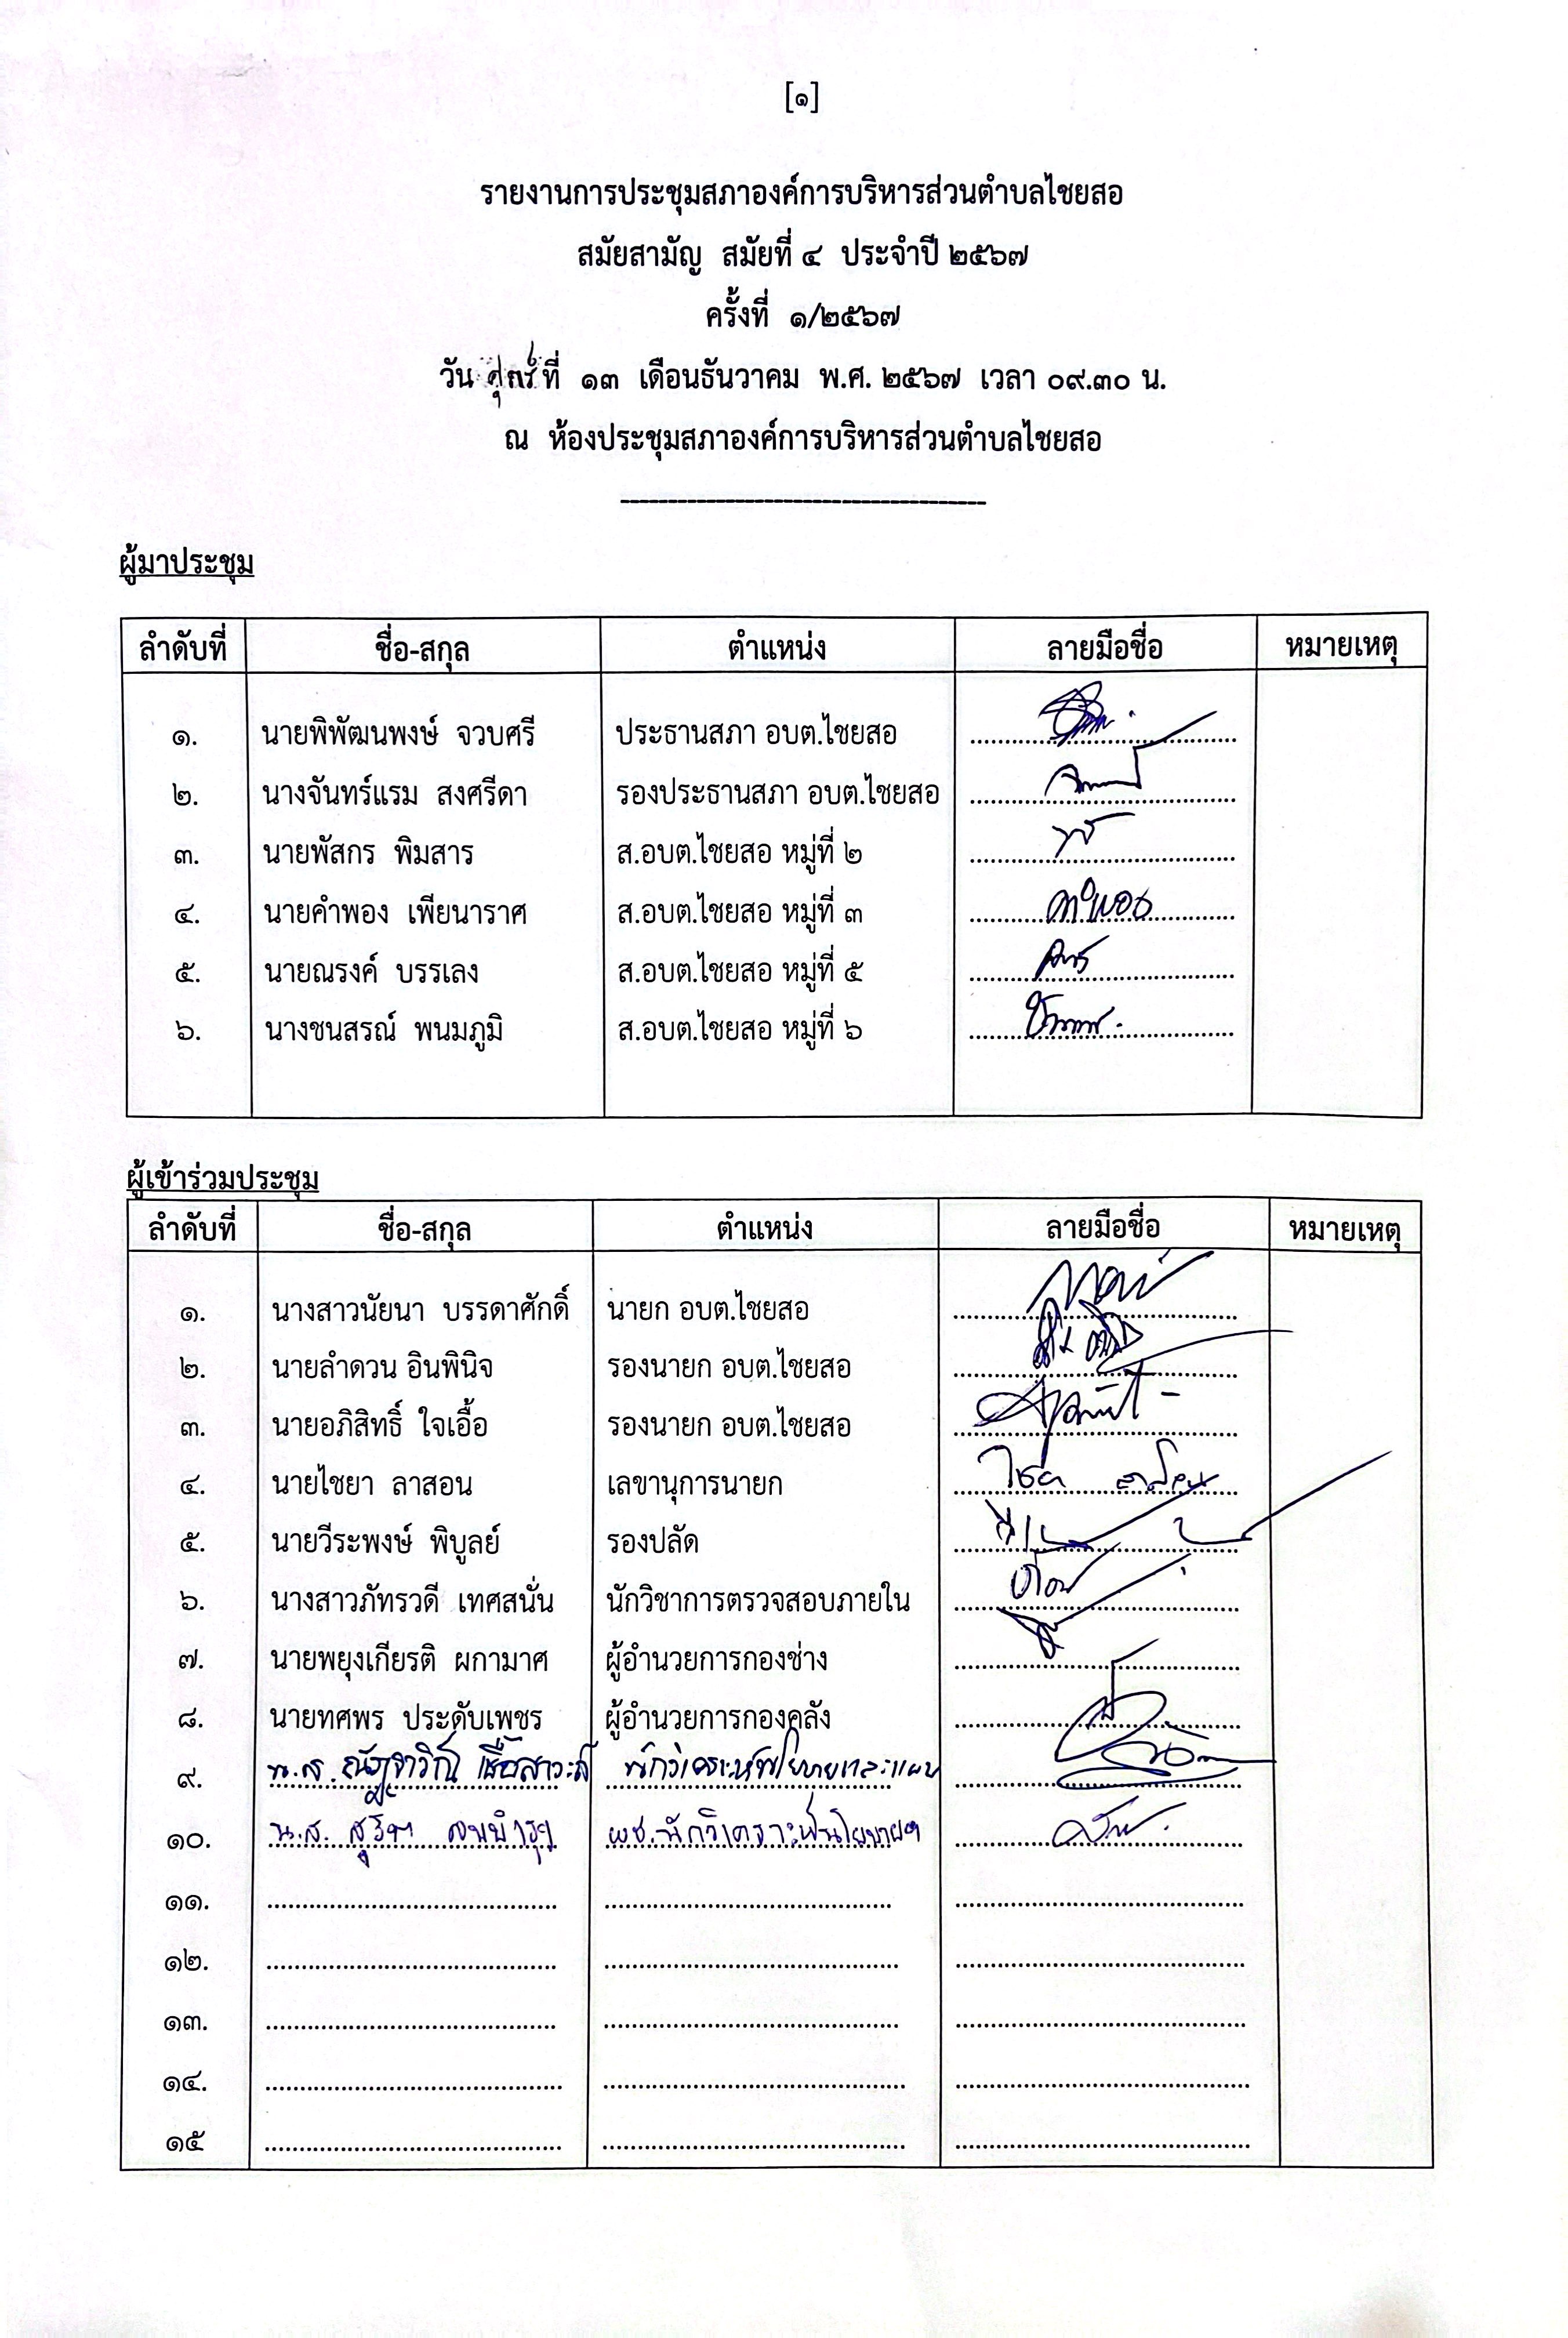 [๑]
รายงานการประชุมสภาองค์การบริหารส่วนตำบลไชยสอ
สมัยสามัญ สมัยที่ ๔ ประจำปี ๒๕๖๗
ครั้งที่ ๑/๒๕๖๗
วัน ศุกร์ ที่ ๑๓ เดือนธันวาคม พ.ศ. ๒๕๖๗ เวลา ๐๙.๓๐ น.
ณ ห้องประชุมสภาองค์การบริหารส่วนตำบลไชยสอ
ผู้มาประชุม
ลำดับที่ ชื่อ-สกุล ตำแหน่ง ลายมือชื่อ หมายเหตุ
๑. นายพิพัฒนพงษ์ จวบศรี ประธานสภา อบต.ไชยสอ
๒. นางจันทร์แรม สงศรีดา รองประธานสภา อบต.ไชยสอ
๓. นายพัสกร พิมสาร ส.อบต.ไชยสอ หมู่ที่ ๒
๔. นายคำพอง เพียนาราศ ส.อบต.ไชยสอ หมู่ที่ ๓ คำพอง
๕. นายณรงค์ บรรเลง ส.อบต.ไชยสอ หมู่ที่ ๕
๖. นางชนสรณ์ พนมภูมิ ส.อบต.ไชยสอ หมู่ที่ ๖
ผู้เข้าร่วมประชุม
ลำดับที่ ชื่อ-สกุล ตำแหน่ง ลายมือชื่อ หมายเหตุ
๑. นางสาวนัยนา บรรดาศักดิ์ นายก อบต.ไชยสอ
๒. นายลำดวน อินพินิจ รองนายก อบต.ไชยสอ
๓. นายอภิสิทธิ์ ใจเอื้อ รองนายก อบต.ไชยสอ
๔. นายไชยา ลาสอน เลขานุการนายก
๕. นายวีระพงษ์ พิบูลย์ รองปลัด
๖. นางสาวภัทรวดี เทศสนั่น นักวิชาการตรวจสอบภายใน
๗. นายพยุงเกียรติ ผกามาศ ผู้อำนวยการกองช่าง
๘. นายทศพร ประดับเพชร ผู้อำนวยการกองคลัง
๙. น.ส. นักวิเคราะห์นโยบายและแผน
๑๐. น.ส. ผช.นักวิเคราะห์นโยบายฯ
๑๑.
๑๒.
๑๓.
๑๔.
๑๕